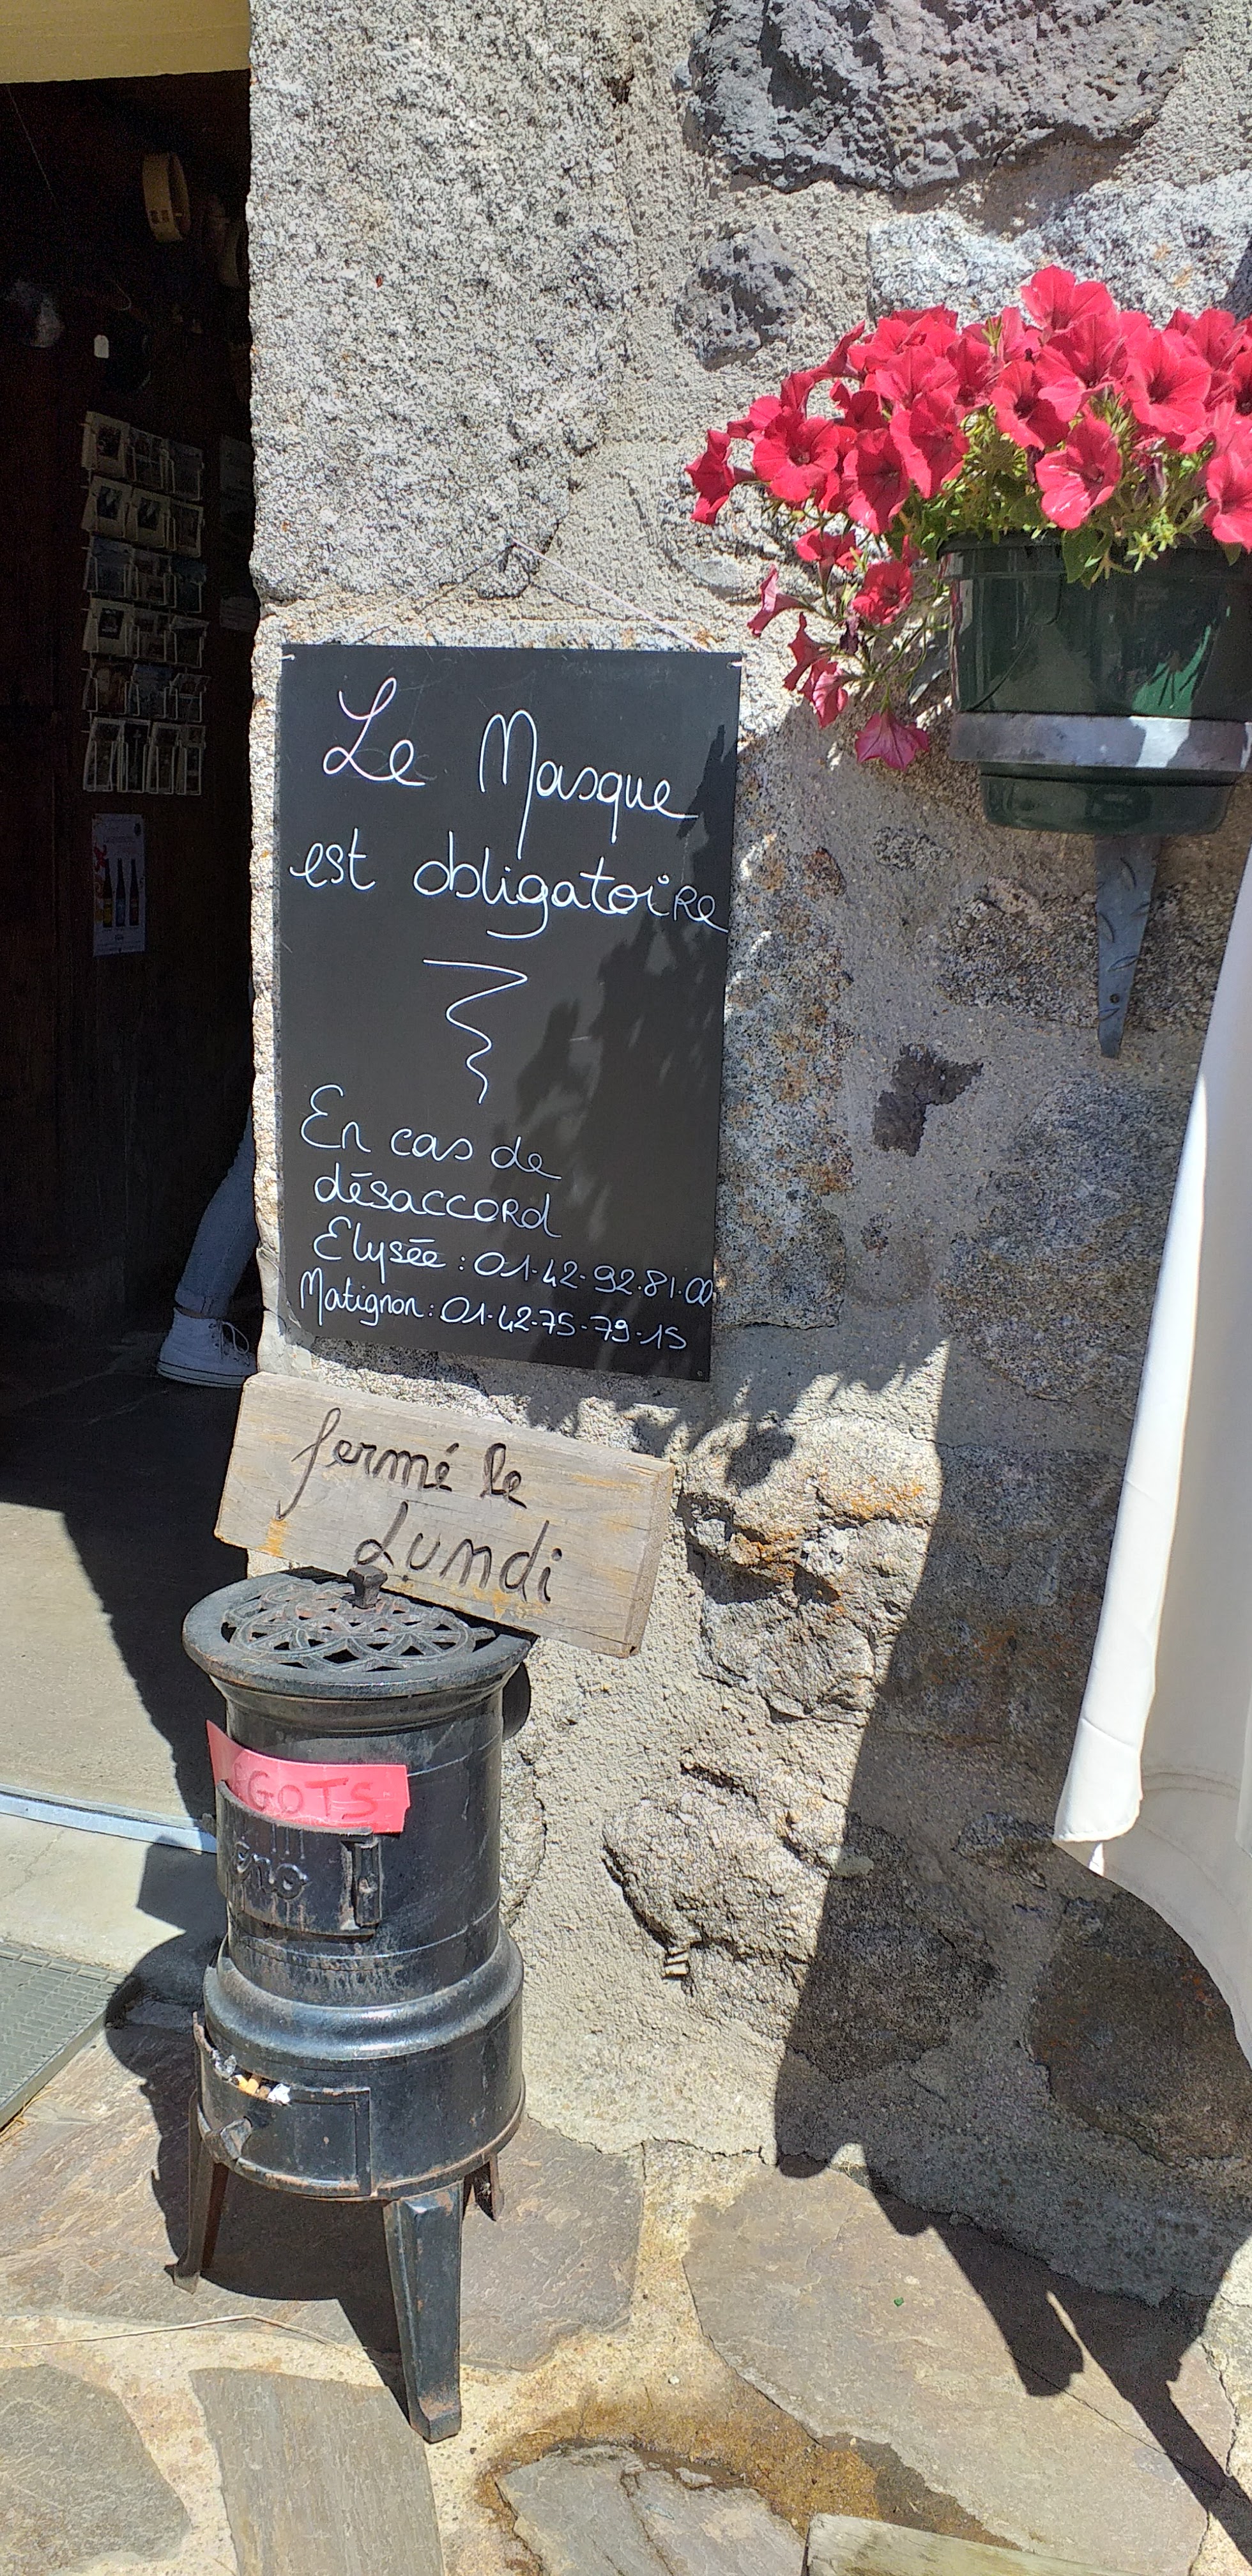 Le Masque
est obligatoire
En cas de
désaccord
Elysée : 01-42-92.81.00
Matignon : 01-42-75-79-15
fermé le
Lundi
GOTS